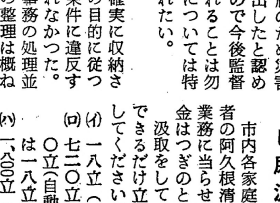 出したと認め
ので今後監督
れることは勿
については特
れたい。
確実に収納さ
の目的に従つ
条件に違反す
れなかつた。
事務の処理並
の整理は概ね
市内各家庭
者の阿久根清
業務に当らせ
金はつぎのと
汲取をして
できるだけ立
してください
(イ) 一八立(
(ロ) 七二〇立
〇立(自動
は一八立
(ハ) 一、八〇〇立